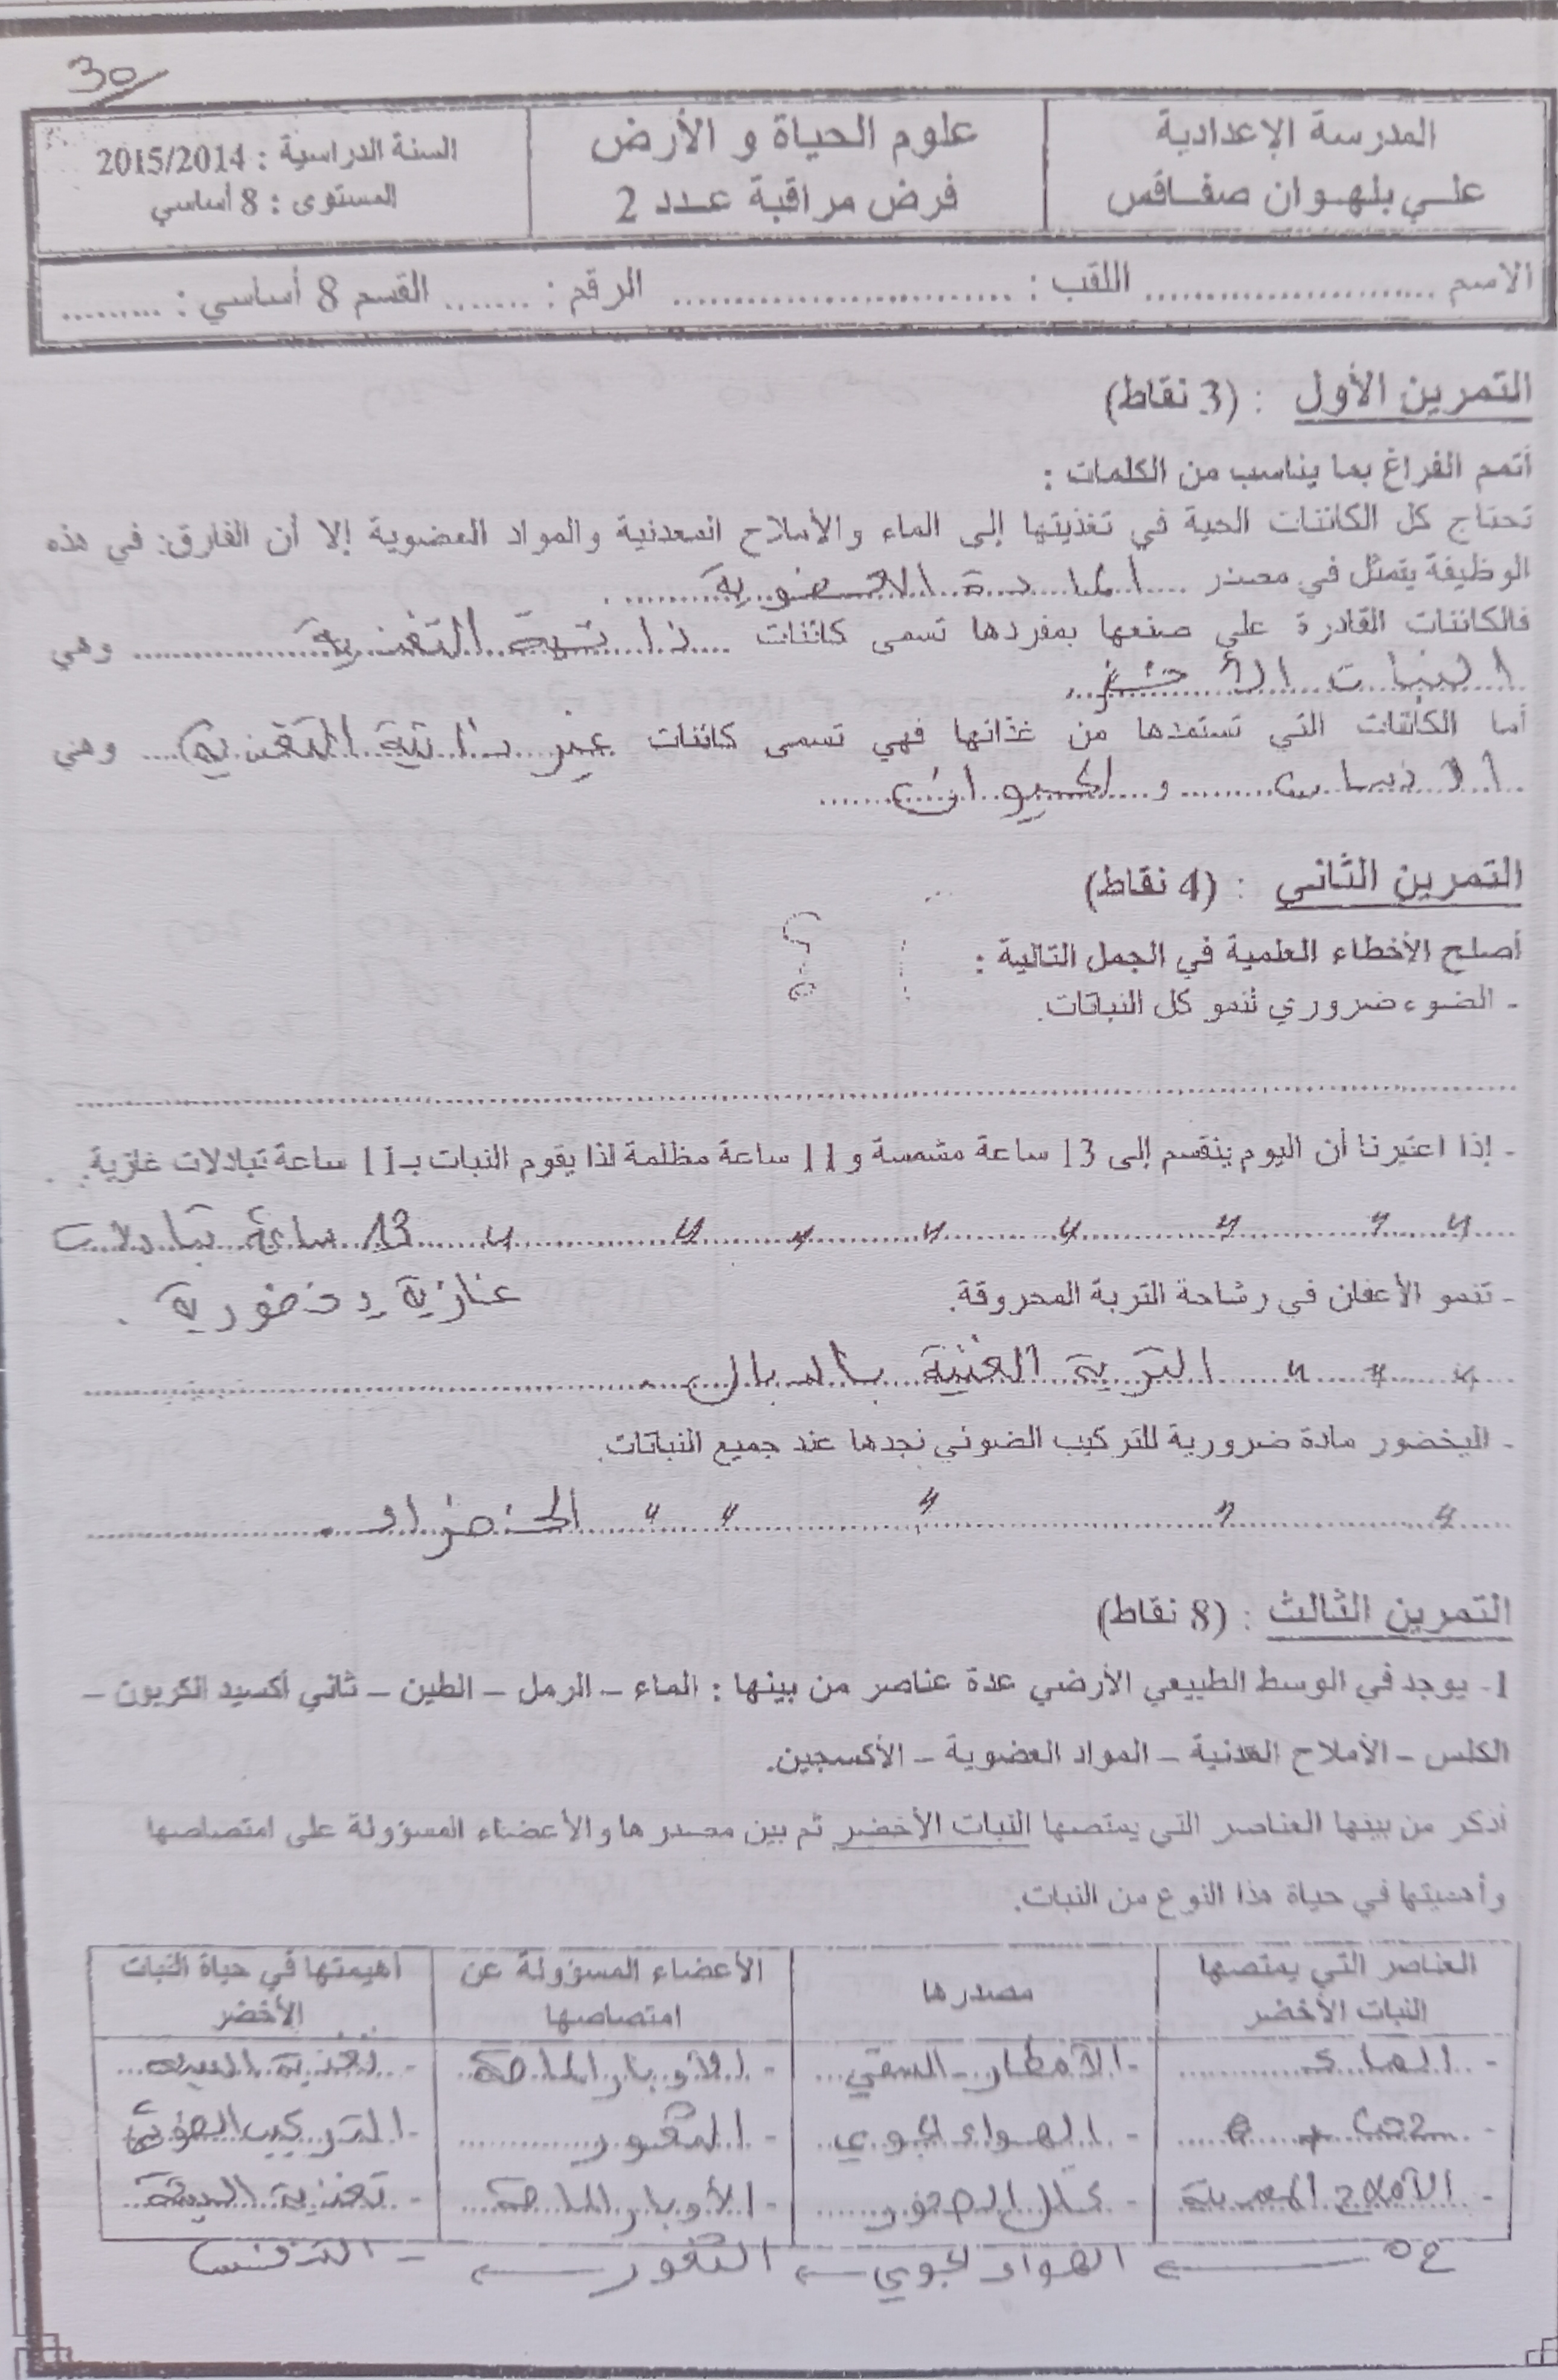 30/
المدرسة الإعدادية
علي بلهوان صفاقس
علوم الحياة و الأرض
فرض مراقبة عدد 2
السنة الدراسية : 2015/2014
المستوى : 8 أساسي
الاسم ........................ اللقب : ............................ الرقم : ....... القسم 8 أساسي : .........
التمرين الأول : (3 نقاط)
أتمم الفراغ بما يناسب من الكلمات :
تحتاج كل الكائنات الحية في تغذيتها إلى الماء والأملاح المعدنية والمواد العضوية إلا أن الفارق في هذه
الوظيفة يتمثل في مصدر المادة العضوية .
فالكائنات القادرة على صنعها بمفردها تسمى كائنات ذاتية التغذية وهي
النبات الأخضر
أما الكائنات التي تستمدها من غذائها فهي تسمى كائنات غير ذاتية التغذية وهي
و الحيوان
التمرين الثاني : (4 نقاط)
أصلح الأخطاء العلمية في الجمل التالية :
- الضوء ضروري لنمو كل النباتات.
- إذا اعتبرنا أن اليوم ينقسم إلى 13 ساعة مشمسة و 11 ساعة مظلمة لذا يقوم النبات بـ 11 ساعة تبادلات غازية.
" " " " " " " " 13 ساعة تبادلات
غازية يخضورية .
- تنمو الأعفان في رشاحة التربة المحروقة.
" " " التربة الغنية بالدبال .
- اليخضور مادة ضرورية للتركيب الضوئي نجدها عند جميع النباتات.
" " " " " الخضراء .
التمرين الثالث : (8 نقاط)
1- يوجد في الوسط الطبيعي الأرضي عدة عناصر من بينها : الماء – الرمل – الطين – ثاني أكسيد الكربون –
الكلس – الأملاح المعدنية – المواد العضوية – الأكسجين.
أذكر من بينها العناصر التي يمتصها النبات الأخضر ثم بين مصدرها والأعضاء المسؤولة على امتصاصها
وأهميتها في حياة هذا النوع من النبات.
العناصر التي يمتصها النبات الأخضر
مصدرها
الأعضاء المسؤولة عن امتصاصها
أهميتها في حياة النبات الأخضر
- الماء - الأمطار - السقي - الأوبار الماصة - تغذية
- - الهواء الجوي - الثغور - التركيب الضوئي
- الأملاح المعدنية - الصخور - الأوبار الماصة - تغذية
← الهواء الجوي ← الثغور ← - التنفس